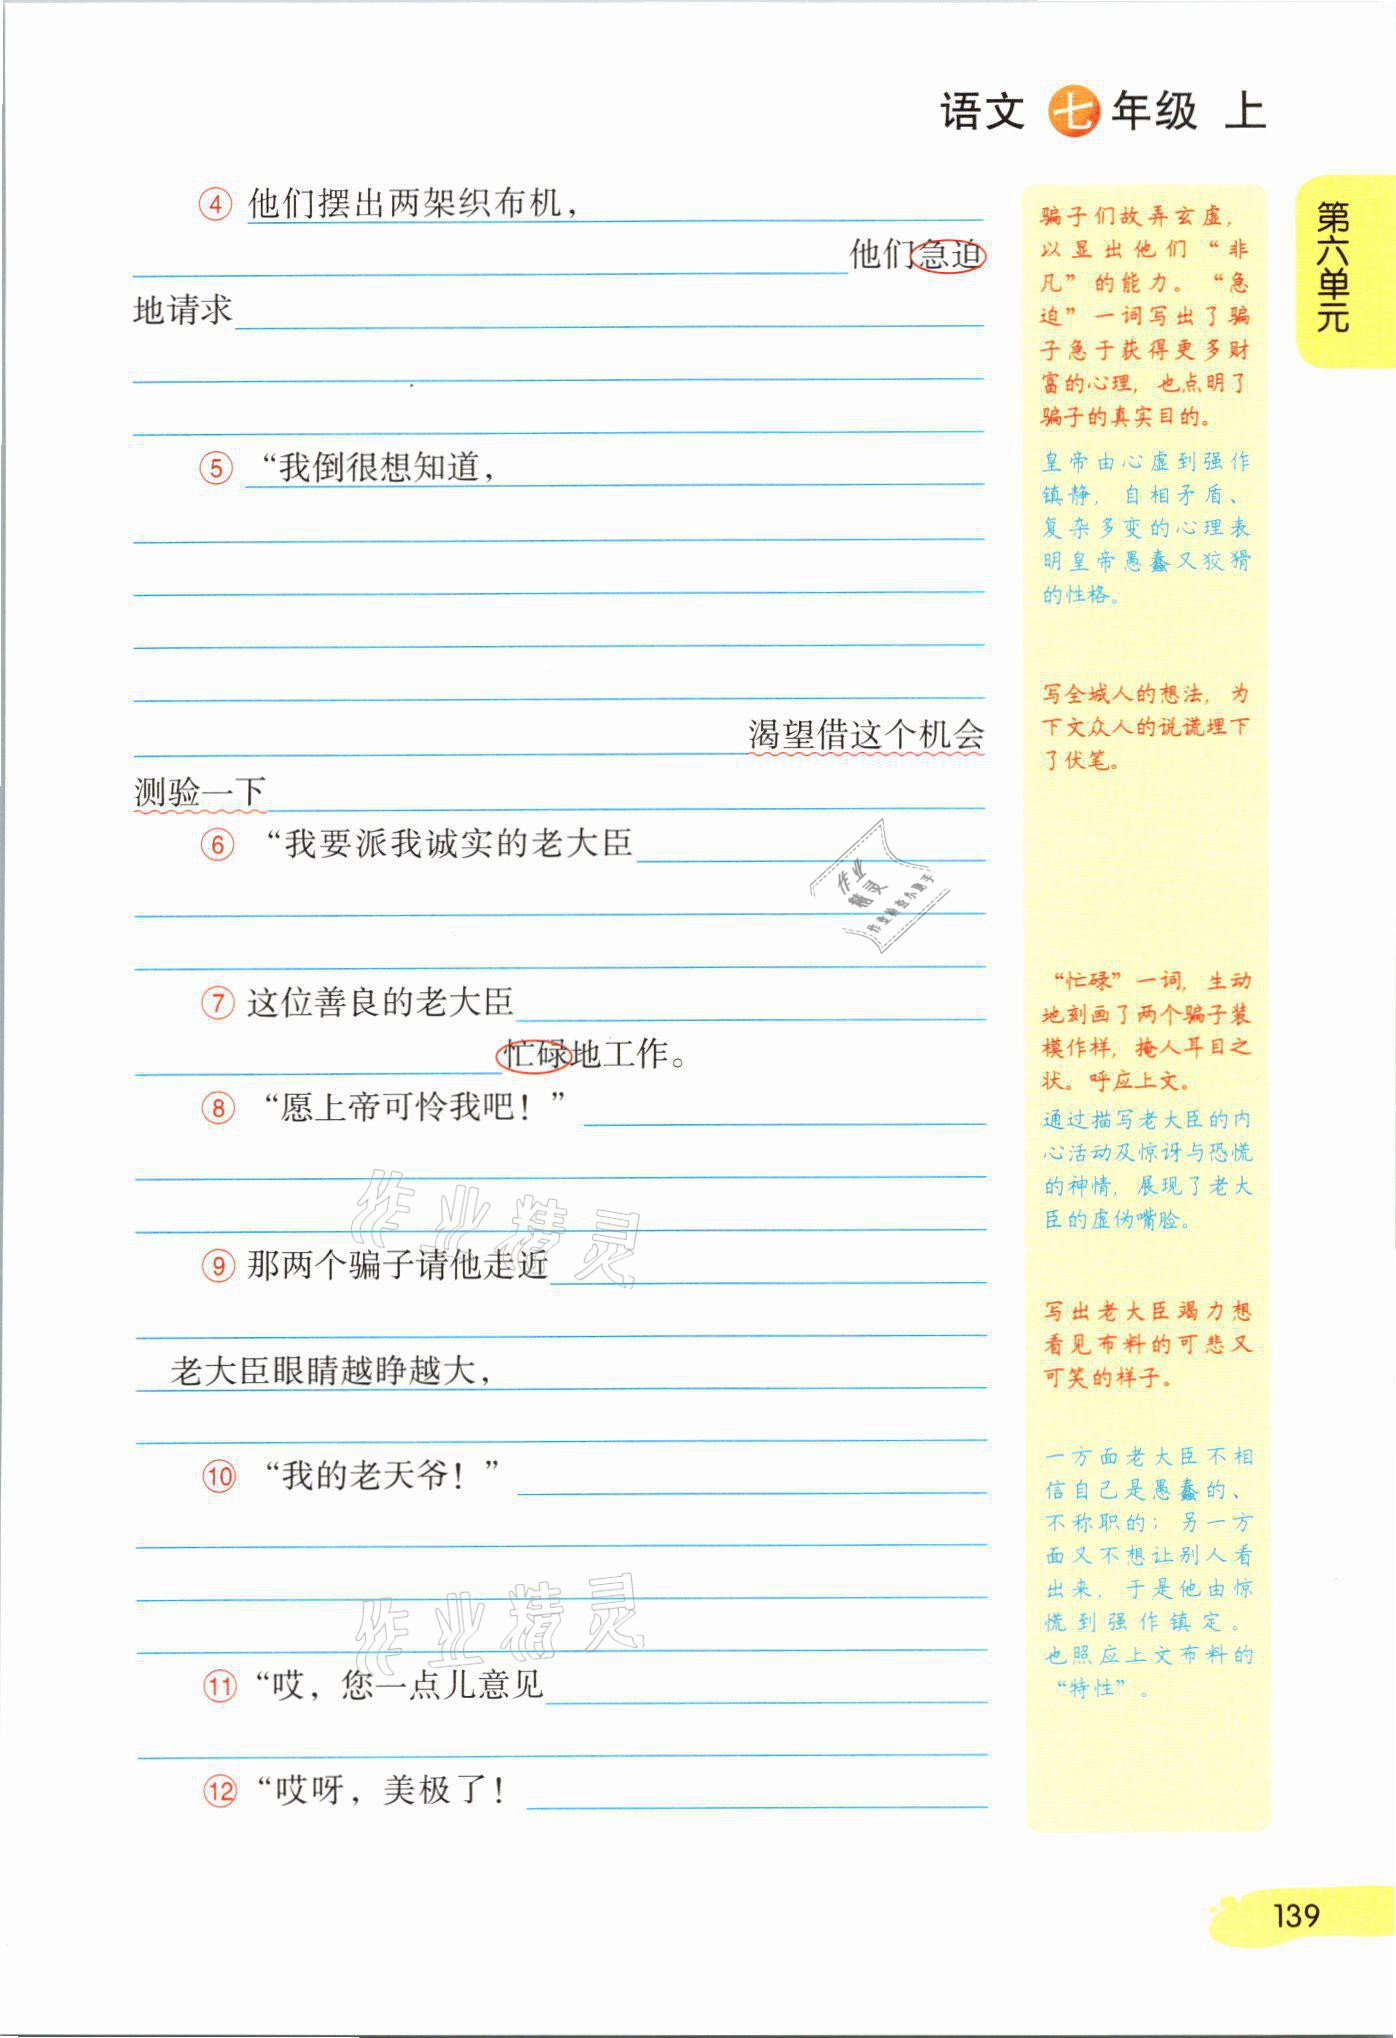 语文 七 年级 上
第六单元
④ 他们摆出两架织布机，
他们急迫
地请求
⑤ “我倒很想知道，
渴望借这个机会
测验一下
⑥ “我要派我诚实的老大臣
⑦ 这位善良的老大臣
忙碌地工作。
⑧ “愿上帝可怜我吧！”
⑨ 那两个骗子请他走近
老大臣眼睛越睁越大，
⑩ “我的老天爷！”
⑪ “哎，您一点儿意见
⑫ “哎呀，美极了！
骗子们故弄玄虚，
以显出他们“非
凡”的能力。“急
迫”一词写出了骗
子急于获得更多财
富的心理，也点明了
骗子的真实目的。
皇帝由心虚到强作
镇静，自相矛盾、
复杂多变的心理表
明皇帝愚蠢又狡猾
的性格。
写全城人的想法，为
下文众人的说谎埋下
了伏笔。
“忙碌”一词，生动
地刻画了两个骗子装
模作样，掩人耳目之
状。呼应上文。
通过描写老大臣的内
心活动及惊讶与恐慌
的神情，展现了老大
臣的虚伪嘴脸。
写出老大臣竭力想
看见布料的可悲又
可笑的样子。
一方面老大臣不相
信自己是愚蠢的、
不称职的；另一方
面又不想让别人看
出来，于是他由惊
慌到强作镇定。
也照应上文布料的
“特性”。
作业
精灵
作业检查小助手
作业精灵
作业精灵
139